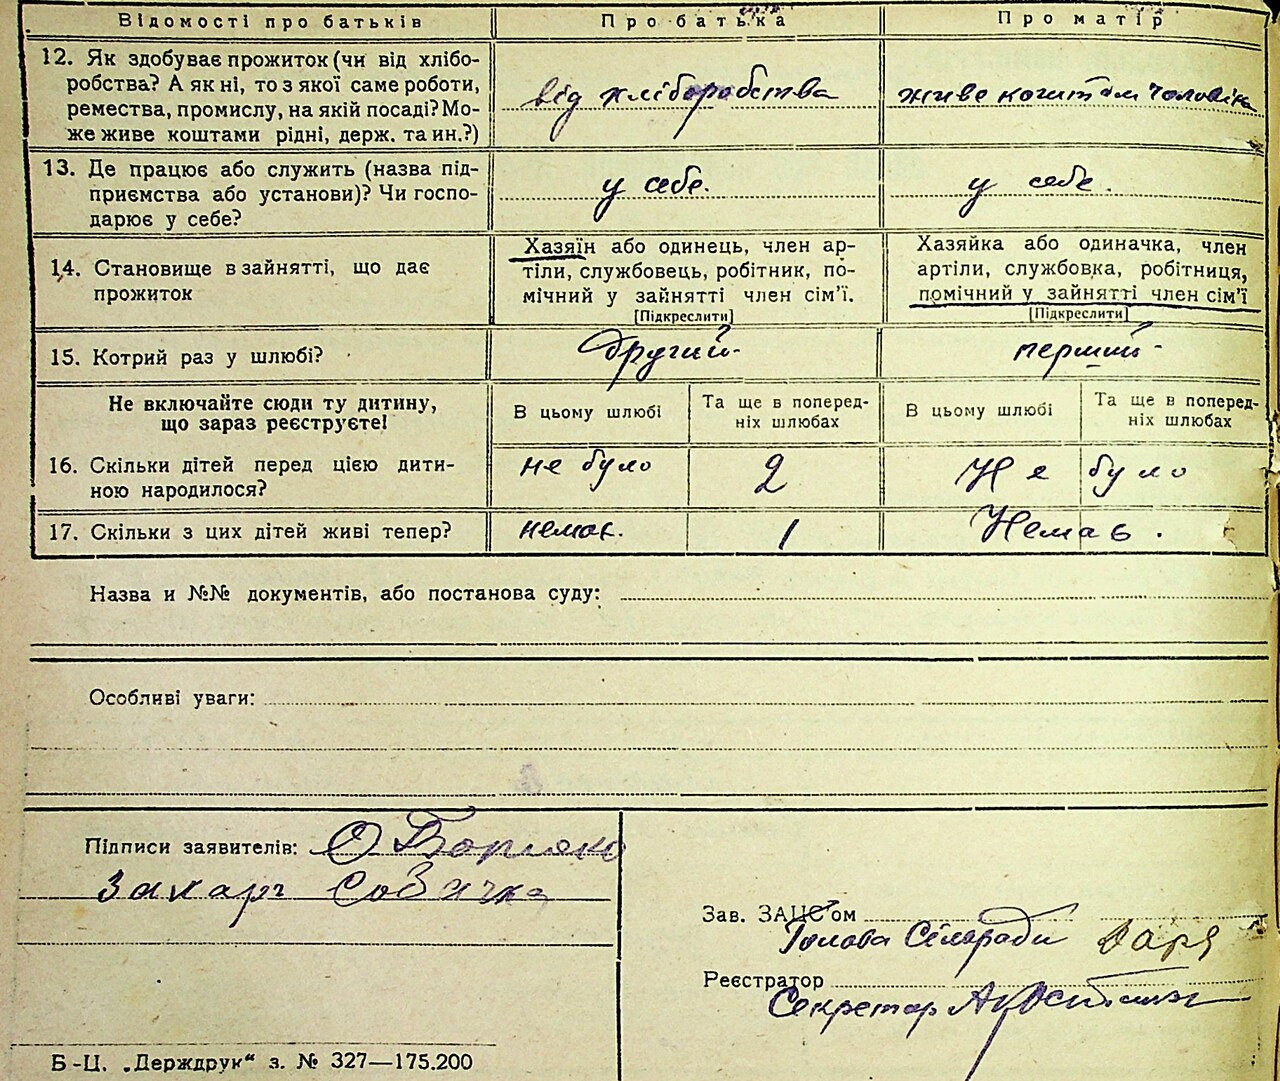 Відомості про батьків Про батька Про матір
12. Як здобуває прожиток (чи від хлібо-
робства? А як ні, то з якої саме роботи,
ремества, промислу, на якій посаді? Мо-
же живе коштами рідні, держ. та ин.?)
від хліборобства
живе коштом чоловіка
13. Де працює або служить (назва під-
приємства або установи)? Чи госпо-
дарює у себе?
у себе.
у себе.
14. Становище в зайнятті, що дає
прожиток
Хазяїн або одинець, член ар-
тіли, службовець, робітник, по-
мічний у зайнятті член сім’ї.
[Підкреслити]
Хазяйка або одиначка, член
артіли, службовка, робітниця,
помічний у зайнятті член сім’ї
[Підкреслити]
15. Котрий раз у шлюбі?
другий
перший
Не включайте сюди ту дитину,
що зараз реєструєте!
В цьому шлюбі
Та ще в поперед-
ніх шлюбах
В цьому шлюбі
Та ще в поперед-
ніх шлюбах
16. Скільки дітей перед цією дити-
ною народилося?
не було
2
Не було
17. Скільки з цих дітей живі тепер?
немає.
1
Немає.
Назва и №№ документів, або постанова суду:
Особливі уваги:
Підписи заявителів: О
Захарг
Зав. ЗАЦС’ом
Голова Сільради
Реєстратор
Секретар
Б-Ц. „Держдрук“ з. № 327—175.200